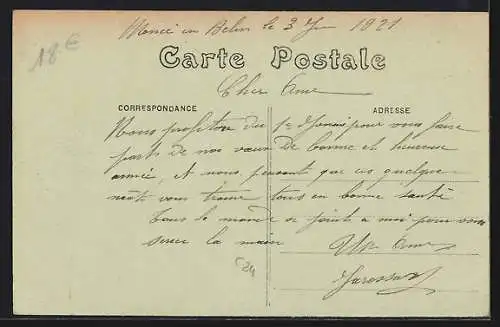 Moncé en Belin le 3 Jer 1921
18 €
Carte Postale
Cher Ami
CORRESPONDANCE
ADRESSE
Nous profiton du 1er de Janvier pour vous faire
parts de nos vœux De bonne et heureuse
année, et nous pensant que ces quelque
mots vous trouve tous en bonne santé
Tous le monde se joints a moi pour vous
serrer la main
Ami